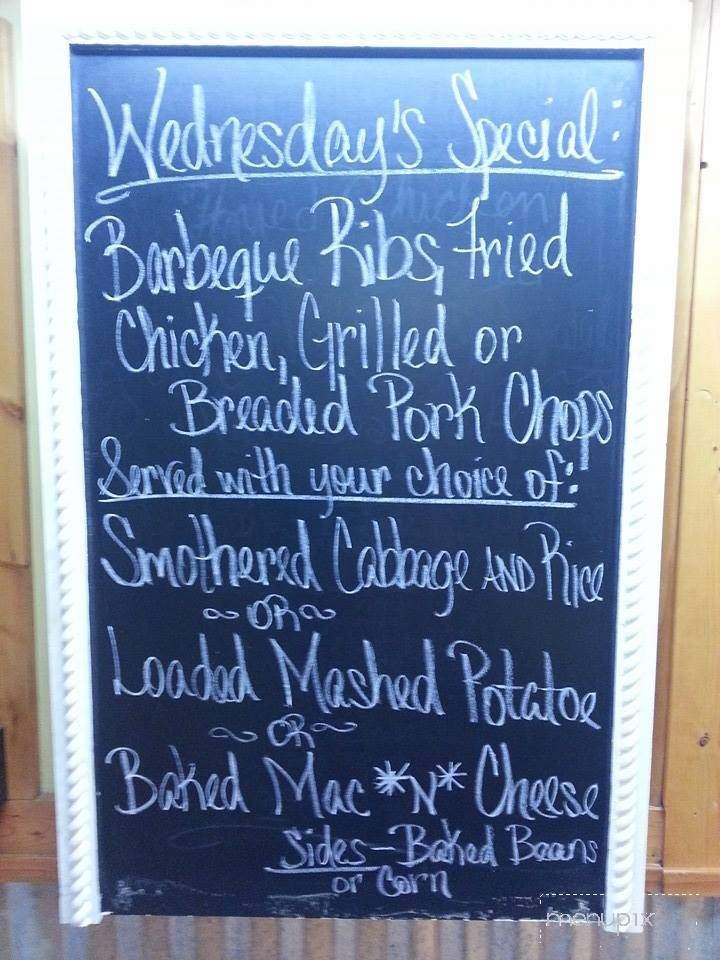 Wednesday's Special:
Barbeque Ribs, Fried
Chicken, Grilled or
Breaded Pork Chops
Served with your choice of:
Smothered Cabbage AND Rice
~OR~
Loaded Mashed Potatoe
~OR~
Baked Mac *N* Cheese
Sides - Baked Beans
or Corn
menupix